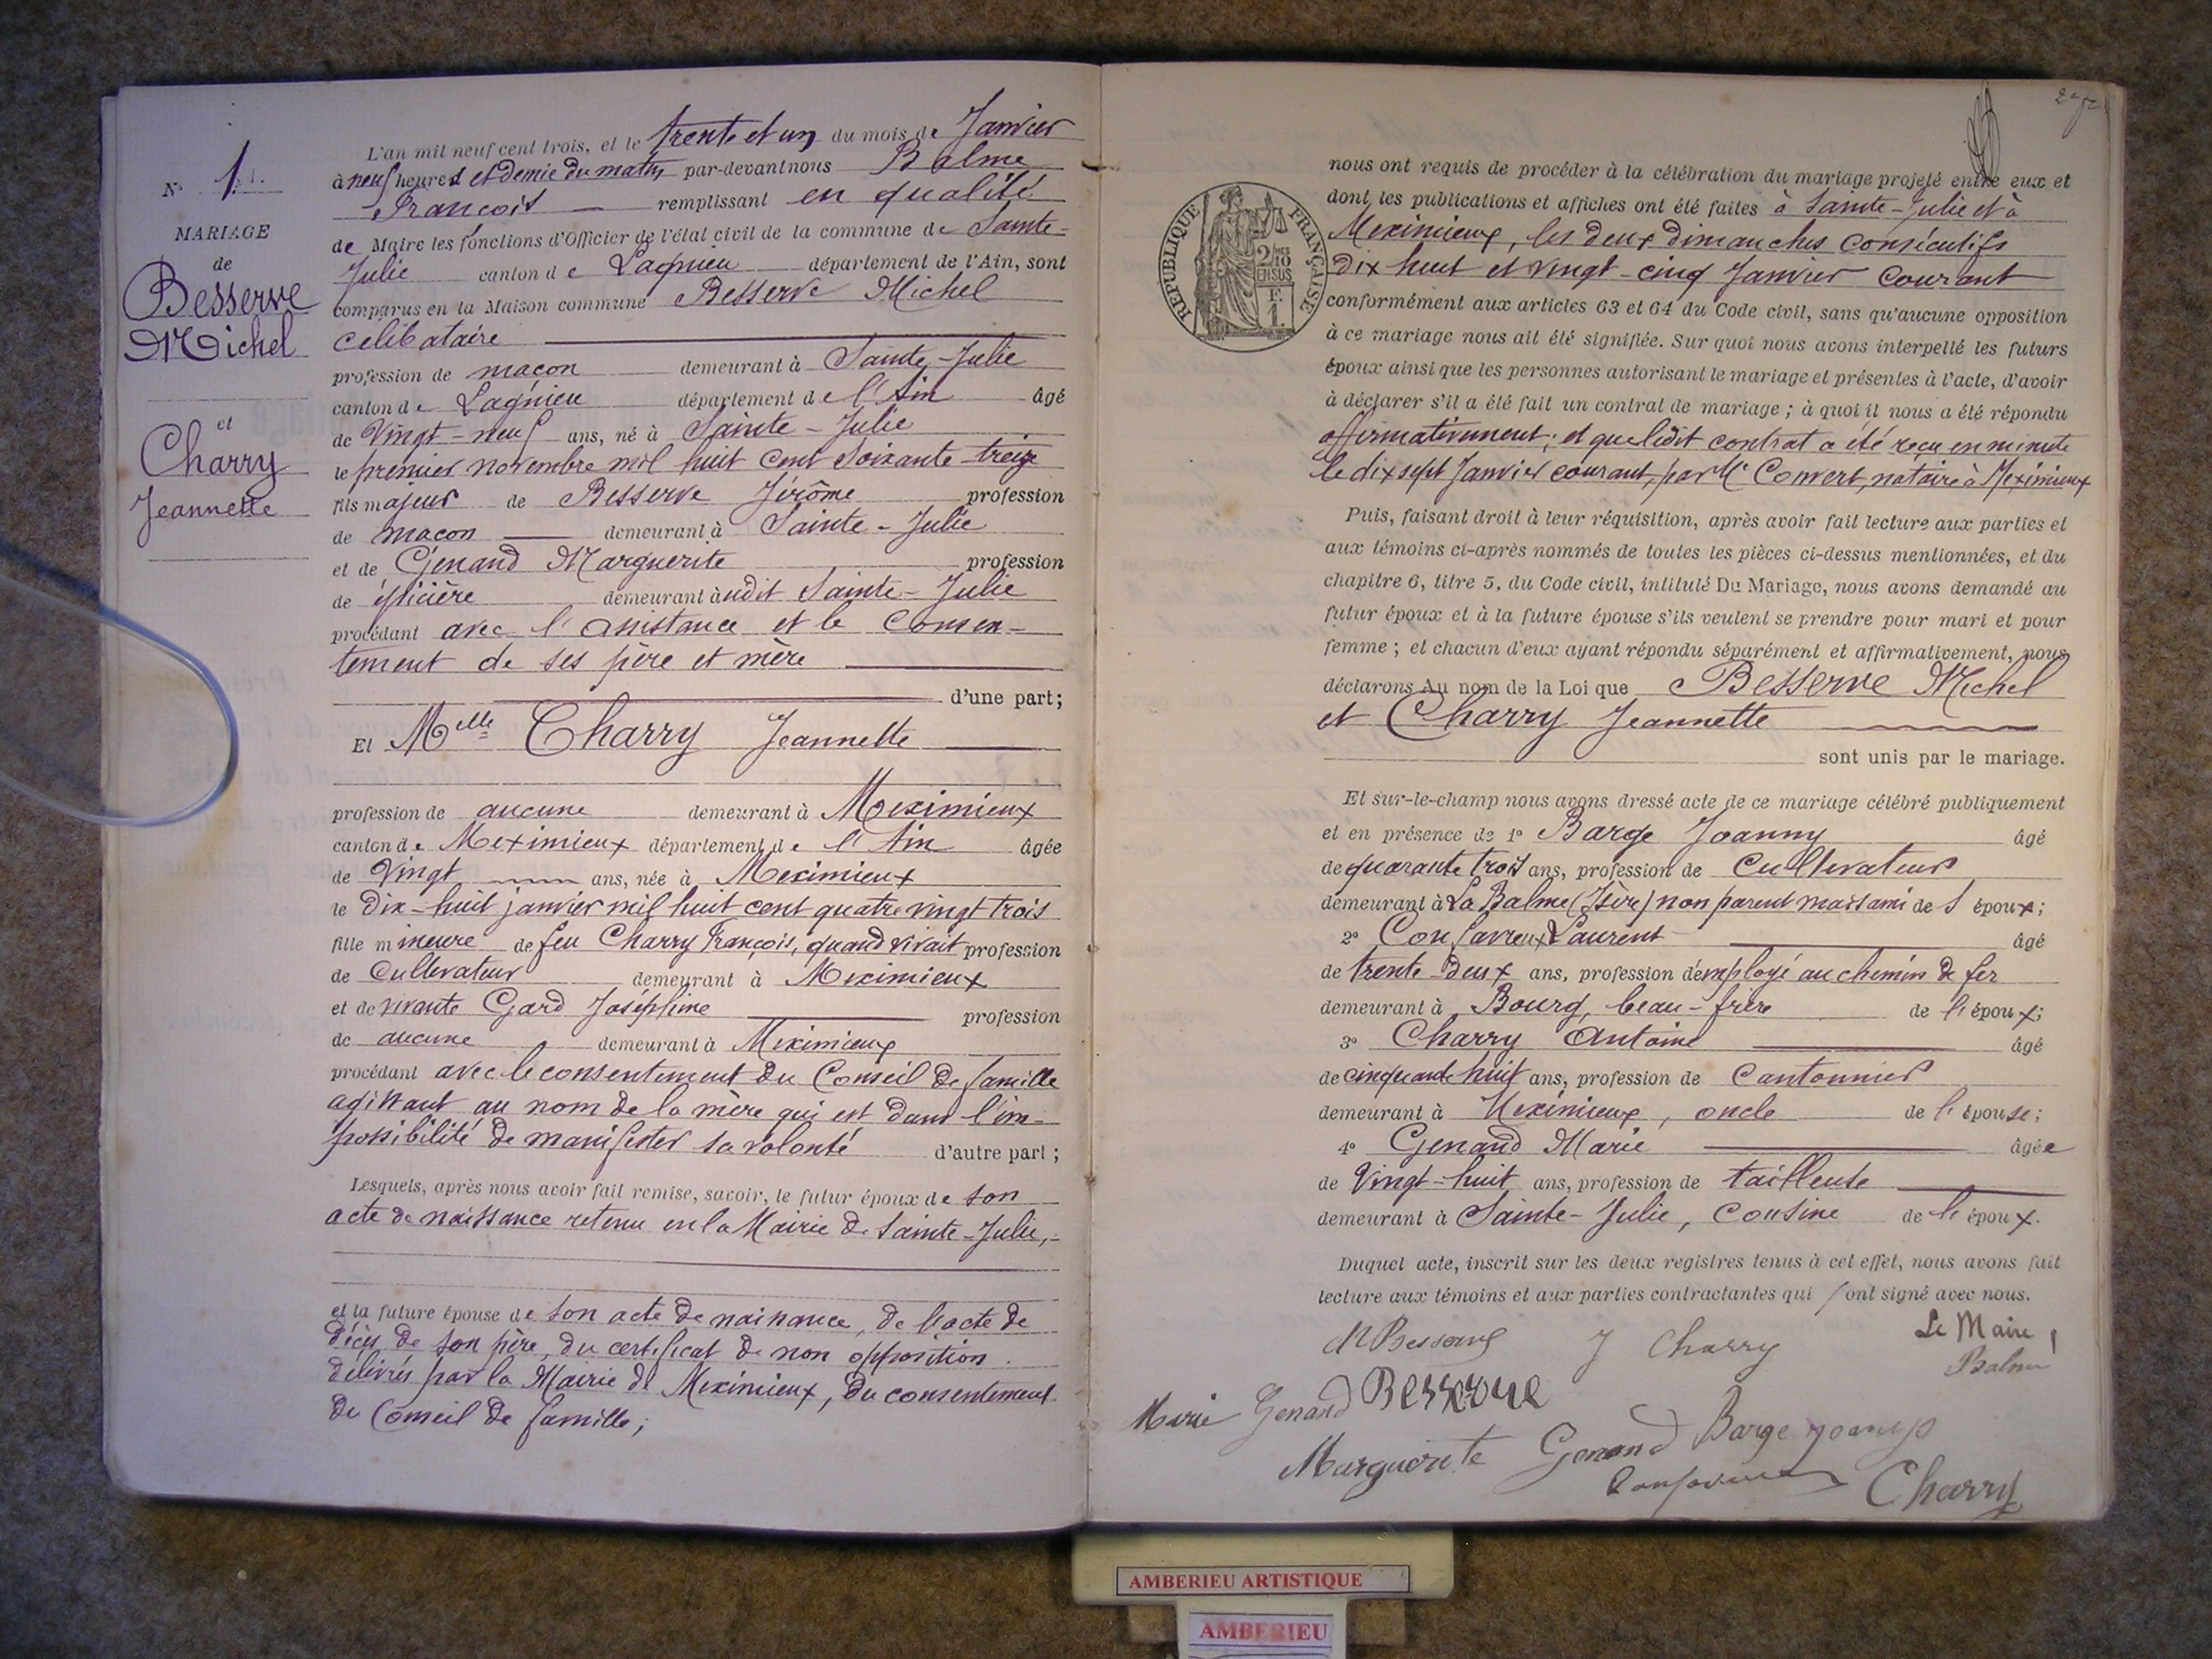 N° 1.
MARIAGE
de
Besserve
Michel
et
Charry
Jeannette
L'an mil neuf cent trois, et le trente et un du mois de Janvier
à neuf heures et demie du matin par-devant nous Balme
François remplissant en qualité
de Maire les fonctions d'Officier de l'état civil de la commune de Sainte-
Julie canton de Lagnieu département de l'Ain, sont
comparus en la Maison commune Besserve Michel
célibataire
profession de maçon demeurant à Sainte-Julie
canton de Lagnieu département de l'Ain âgé
de Vingt-neuf ans, né à Sainte-Julie
le premier novembre mil huit cent soixante-treize
fils majeur de Besserve Jérôme profession
de maçon demeurant à Sainte-Julie
et de Génand Marguerite profession
de épicière demeurant àudit Sainte-Julie
procédant avec l'assistance et le consen-
tement de ses père et mère
d'une part;
Et Melle Charry Jeannette
profession de aucune demeurant à Meximieux
canton de Meximieux département de l'Ain âgée
de Vingt ans, née à Meximieux
le Dix-huit janvier mil huit cent quatre vingt trois
fille mineure de feu Charry François, quand vivait profession
de Cultivateur demeurant à Meximieux
et de vivante Gard Joséphine profession
de aucune demeurant à Meximieux
procédant avec le consentement du Conseil de famille
agissant au nom de la mère qui est dans l'im-
possibilité de manifester sa volonté d'autre part;
Lesquels, après nous avoir fait remise, savoir, le futur époux de son
acte de naissance retenu en la Mairie de Sainte-Julie,-
et la future épouse de son acte de naissance, de l'acte de
décès de son père, du certificat de non opposition
délivrés par la Mairie de Meximieux, du consentement
du Conseil de famille;
REPUBLIQUE FRANÇAISE
2/10
EN SUS
F.
1.
nous ont requis de procéder à la célébration du mariage projeté entre eux et
dont les publications et affiches ont été faites à Sainte-Julie et à
Meximieux, les deux dimanches consécutifs
dix huit et vingt-cinq Janvier courant
conformément aux articles 63 et 64 du Code civil, sans qu'aucune opposition
à ce mariage nous ait été signifiée. Sur quoi nous avons interpellé les futurs
époux ainsi que les personnes autorisant le mariage et présentes à l'acte, d'avoir
à déclarer s'il a été fait un contrat de mariage; à quoi il nous a été répondu
affirmativement; et que ledit contrat a été reçu en minute
le dix sept Janvier courant, par Me Convert, notaire à Meximieux
Puis, faisant droit à leur réquisition, après avoir fait lecture aux parties et
aux témoins ci-après nommés de toutes les pièces ci-dessus mentionnées, et du
chapitre 6, titre 5, du Code civil, intitulé Du Mariage, nous avons demandé au
futur époux et à la future épouse s'ils veulent se prendre pour mari et pour
femme; et chacun d'eux ayant répondu séparément et affirmativement, nous
déclarons Au nom de la Loi que Besserve Michel
et Charry Jeannette
sont unis par le mariage.
Et sur-le-champ nous avons dressé acte de ce mariage célébré publiquement
et en présence de 1° Barge Joanny âgé
de quarante trois ans, profession de Cultivateur
demeurant à La Balme (Isère) non parent mais ami de l'époux;
2° Confavreux Laurent âgé
de trente-deux ans, profession d'employé au chemin de fer
demeurant à Bourg, beau-frère de l'époux;
3° Charry Antoine âgé
de cinquante huit ans, profession de Cantonnier
demeurant à Meximieux, oncle de l'épouse;
4° Genand Marie âgée
de Vingt-huit ans, profession de tailleuse
demeurant à Sainte-Julie, cousine de l'époux.
Duquel acte, inscrit sur les deux registres tenus à cet effet, nous avons fait
lecture aux témoins et aux parties contractantes qui ont signé avec nous.
M Besserve J Charry Le Maire,
Balme
Marie Genand Besserve
Marguerite Genand Barge Joanny
Confavreux Charry
AMBERIEU ARTISTIQUE
AMBERIEU